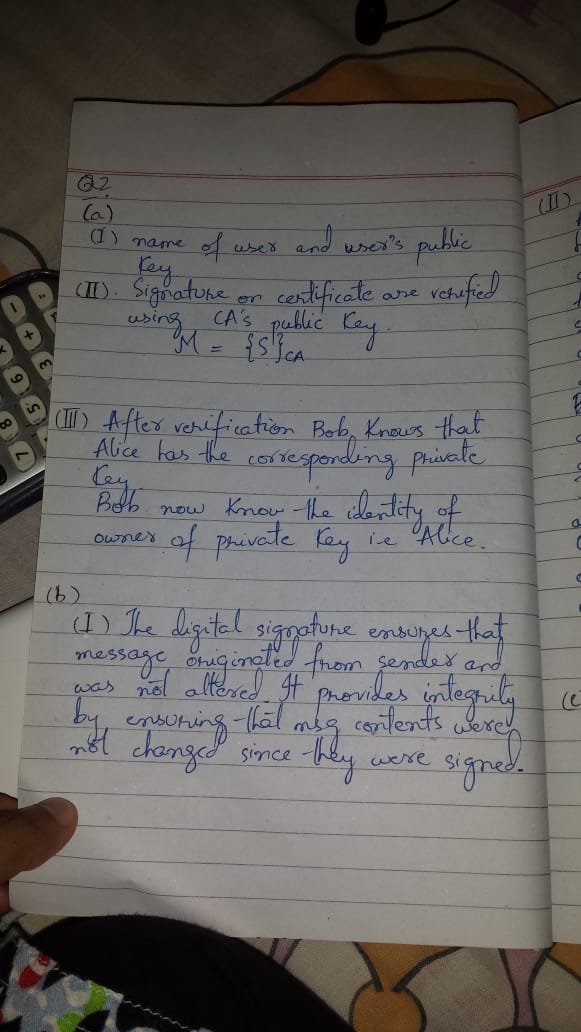 Q2
(a)
(I) name of user and user's public
Key
(II). Signature on certificate are verified
using CA's public Key.
M = {S}CA
(III) After verification Bob, Knows that
Alice has the corresponding private
Key
Bob now Know the identity of
owner of private Key i.e Alice.
(b)
(I) The digital signature ensures that
message originated from sender and
was not altered. It provides integrity
by ensuring that msg contents were
not changed since they were signed.
(II)